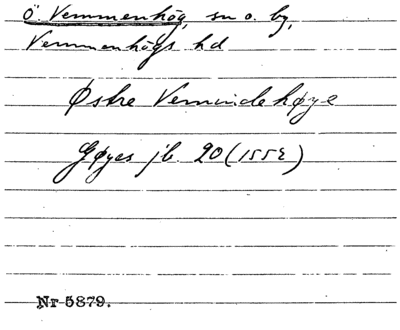 Ö. Vemmenhög, sn o. by,
Vemmenhögs hd
Østre Vemindehøye
Gøyes jb. 20 (1552)
Nr 5879.